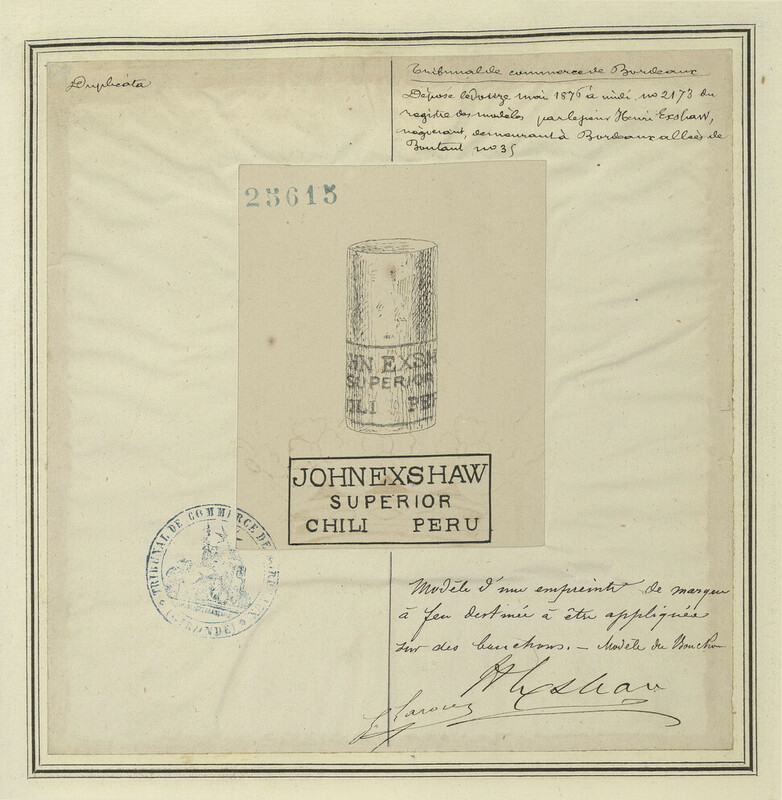 Duplicata
Tribunal de commerce de Bordeaux
Déposé le douze mai 1876 à midi no 2173 du
registre des modèles par le sieur Henri Exshaw,
négociant, demeurant à Bordeaux allées de
Boutaut no 35
25615
HN EXSH
SUPERIOR
ILI PE
JOHN EXSHAW
SUPERIOR
CHILI PERU
TRIBUNAL DE COMMERCE DE BORDEAUX
(GIRONDE)
Modèle d'une empreinte de marque
à feu destinée à être appliquée
sur des bouchons. — Modèle du Bouchon
H Exshaw